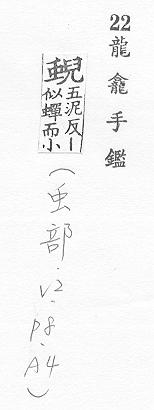 22龍龕手鑑
蜺五泥反丨
似蟬而小
(虫部.V2.P8.A4)